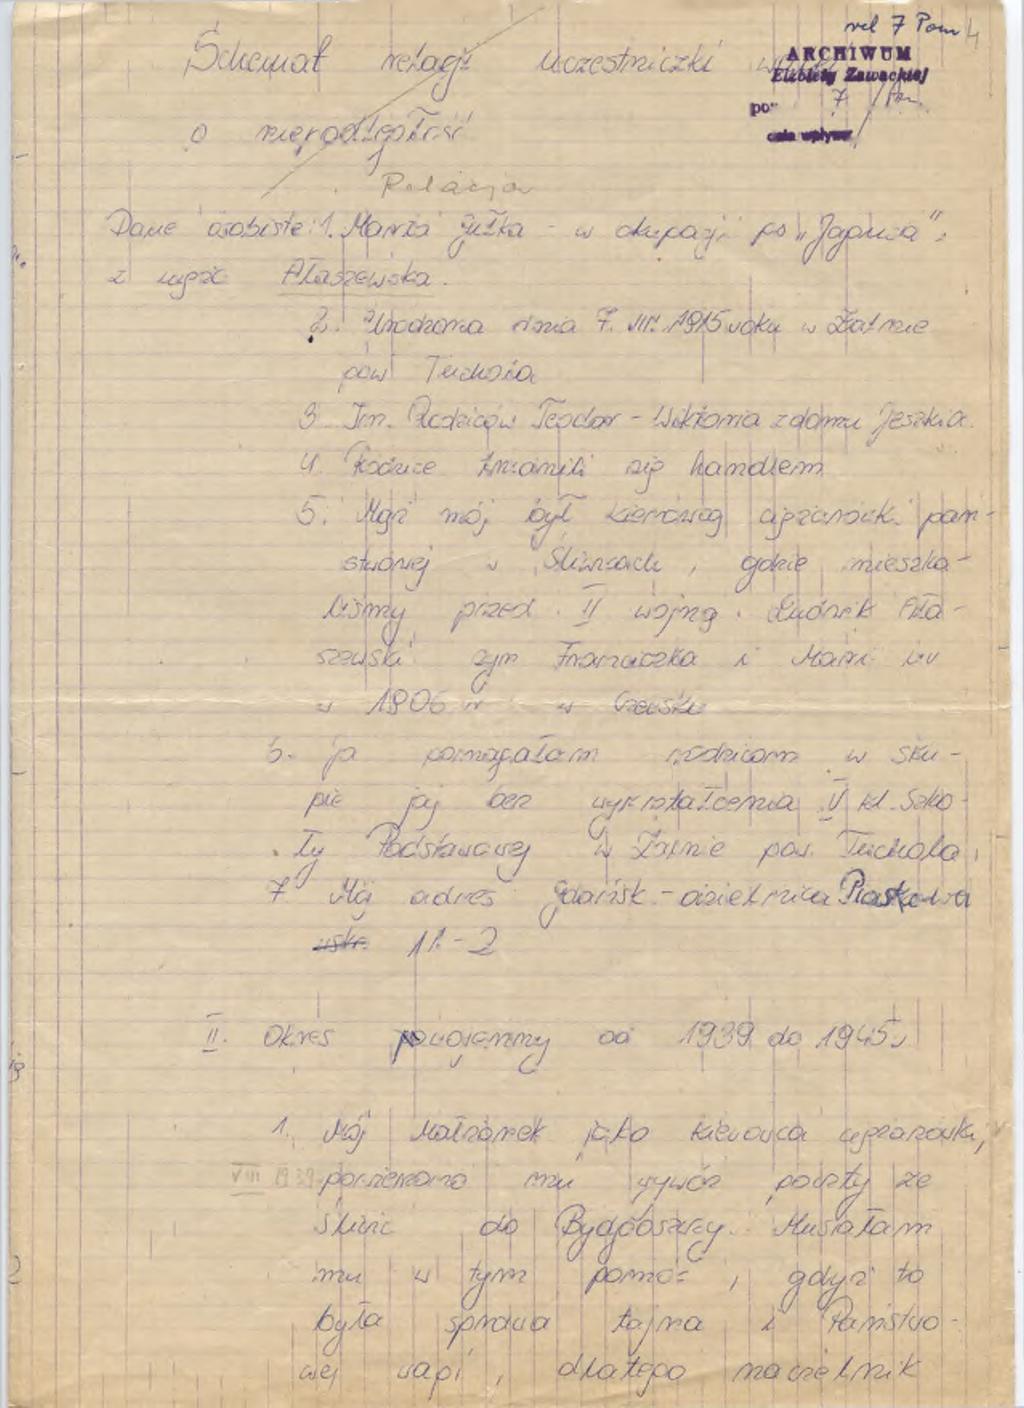 rel 7 Pom 4
ARCHIWUM
Elżbiety Zawackiej
7
data wpływu
Schemat relacji uczestniczki
o niepodległość
Relacja
Dane osobiste: 1. Maria Julka - w okupacji ps „
z męża Ałaszewska.
2. Urodzona dnia 7. VIII. 1915 roku w Zalnie
pow Tuchola
3. Im. Rodziców Teodor - Wiktoria z domu
4. Rodzice trudnili się handlem
5. Mąż mój był kierowcą państ-
stwowej w Śliwicach, gdzie mieszka-
liśmy przed II wojną. Ludwik Ała-
szewski syn Franciszka i Marii ur
w 1906 r w Czersku
6. ja pomagałam rodzicom w skle-
pie jej bez wykształcenia V kl. Szko-
ły Podstawowej w Zalnie pow. Tuchola.
7 Mój adres Gdańsk - dzielnica Piaskowa
11 - 2
II. Okres powojenny od 1939 do 1945 r
1. Mój Małżonek jako kierowca
VIII 1939 powierzono mu wywóz poczty ze
Śliwic do Bydgoszczy. Musiałam
mu w tym pomóc, gdyż to
była sprawa tajna i Państwo-
wej wagi, dlatego naczelnik